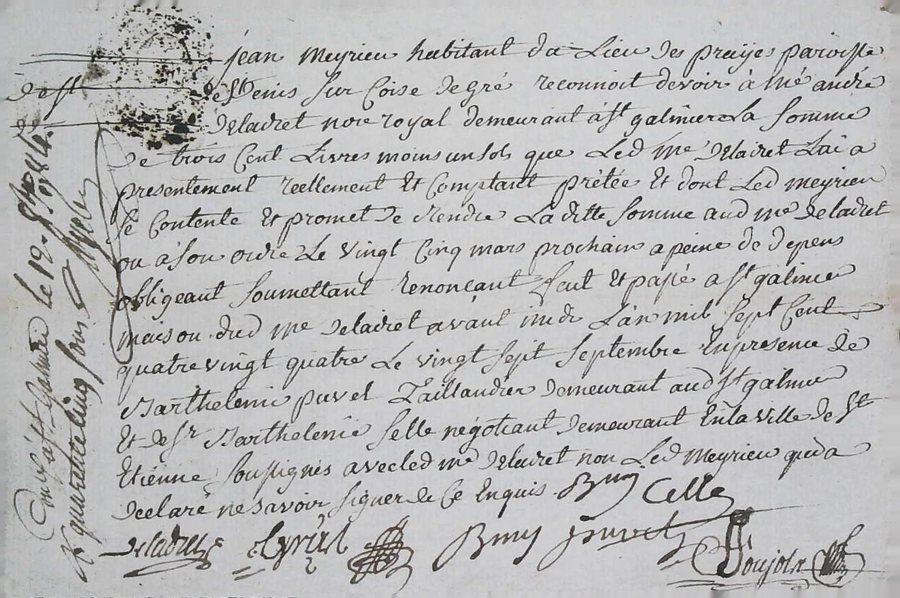 jean Meyrieu habitant du Lieu des praijes paroisse
de St denis Sur Coise de gré reconnoit devoir à Me andré
Deladret nore royal demeurant à St galmier La Somme
De trois Cent Livres moins un sols que Led Me Deladret Lai a
presentement reellement Et Comptant prétée Et dont Led Meyrieu
Se Contente Et promet de rendre La ditte Somme aud Me deladret
ou à Son ordre Le vingt Cinq mars prochain a peine de depens
obligeant Soumettant renonçant fait Et passé a St galmier
maison dud Me Deladret avant midi L'an mil Sept Cent
quatre vingt quatre Le vingt Sept Septembre En presence de
Barthelemi puvel Taillandier demeurant aud St galmier
Et de Sr Barthelemie Selle négotiant demeurant En la ville de St
Etienne Soussignés avec led Me Deladret non Led Meyrieu qui a
declaré ne Savoir Signer de Ce Enquis. Bmy Celle
Deladret Bmy
Coujole